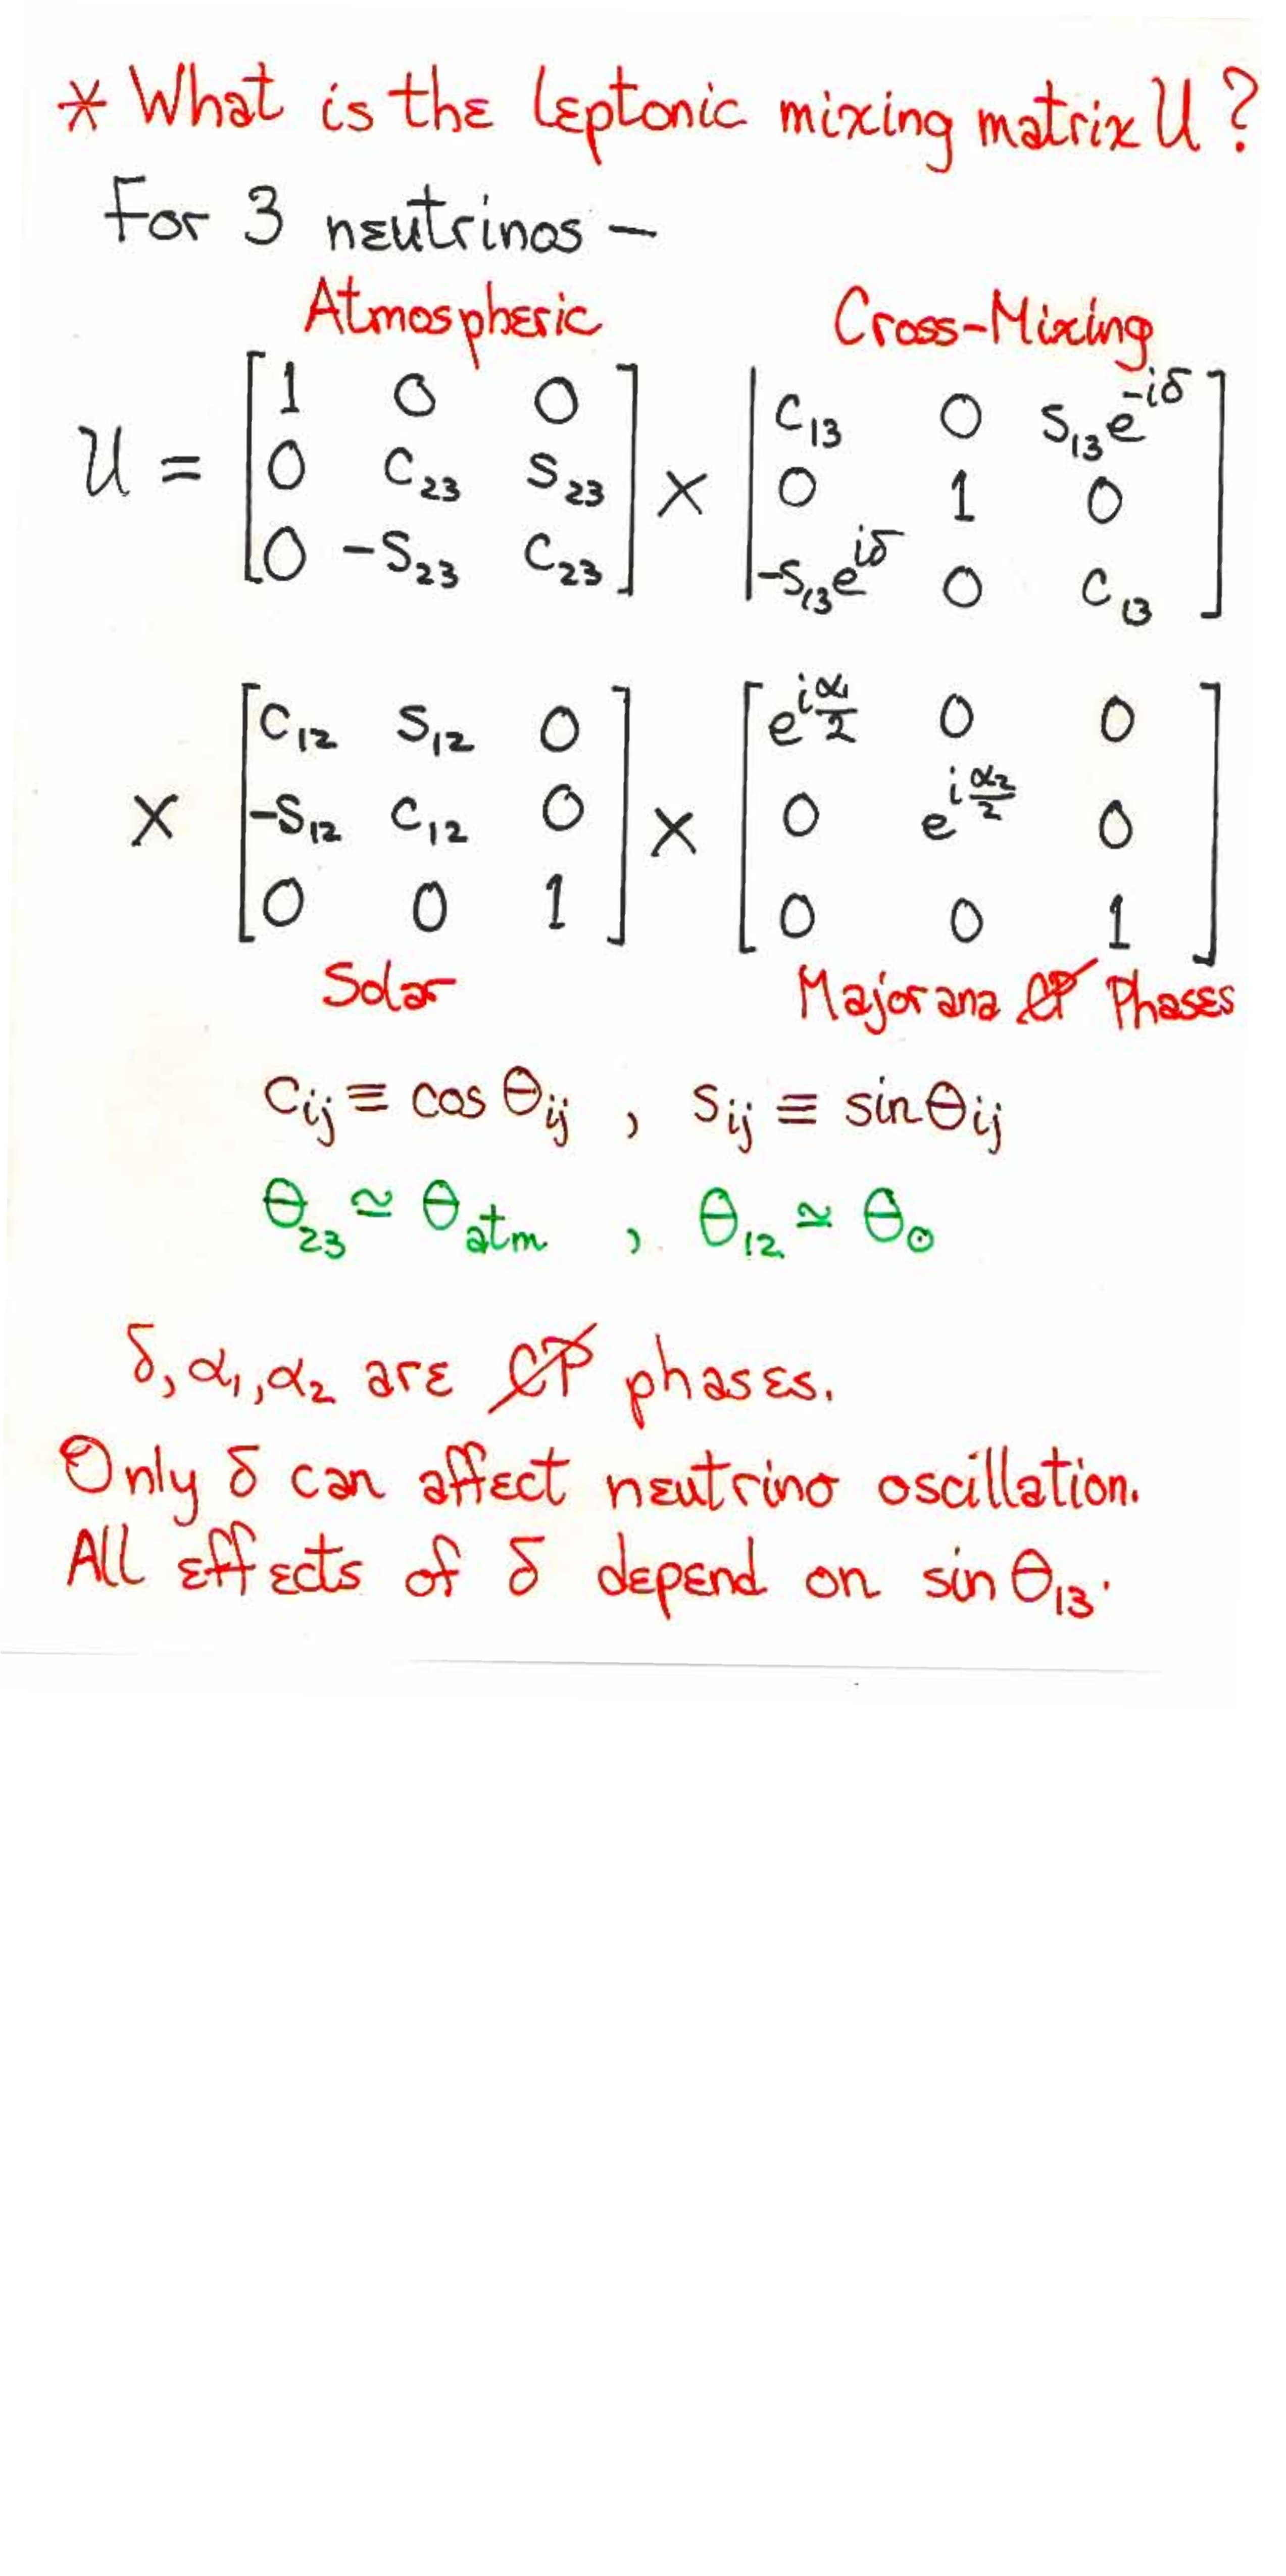 * What is the leptonic mixing matrix U ?
For 3 neutrinos —
Atmospheric Cross-Mixing
U = [1 0 0; 0 c₂₃ s₂₃; 0 -s₂₃ c₂₃] × [c₁₃ 0 s₁₃e^{-iδ}; 0 1 0; -s₁₃e^{iδ} 0 c₁₃]
× [c₁₂ s₁₂ 0; -s₁₂ c₁₂ 0; 0 0 1] × [e^{iα₁/2} 0 0; 0 e^{iα₂/2} 0; 0 0 1]
Solar Majorana C̸P̸ Phases
cᵢⱼ ≡ cos θᵢⱼ , sᵢⱼ ≡ sin θᵢⱼ
θ₂₃ ≃ θ_atm , θ₁₂ ≃ θ_⊙
δ, α₁, α₂ are C̸P̸ phases.
Only δ can affect neutrino oscillation.
All effects of δ depend on sin θ₁₃.